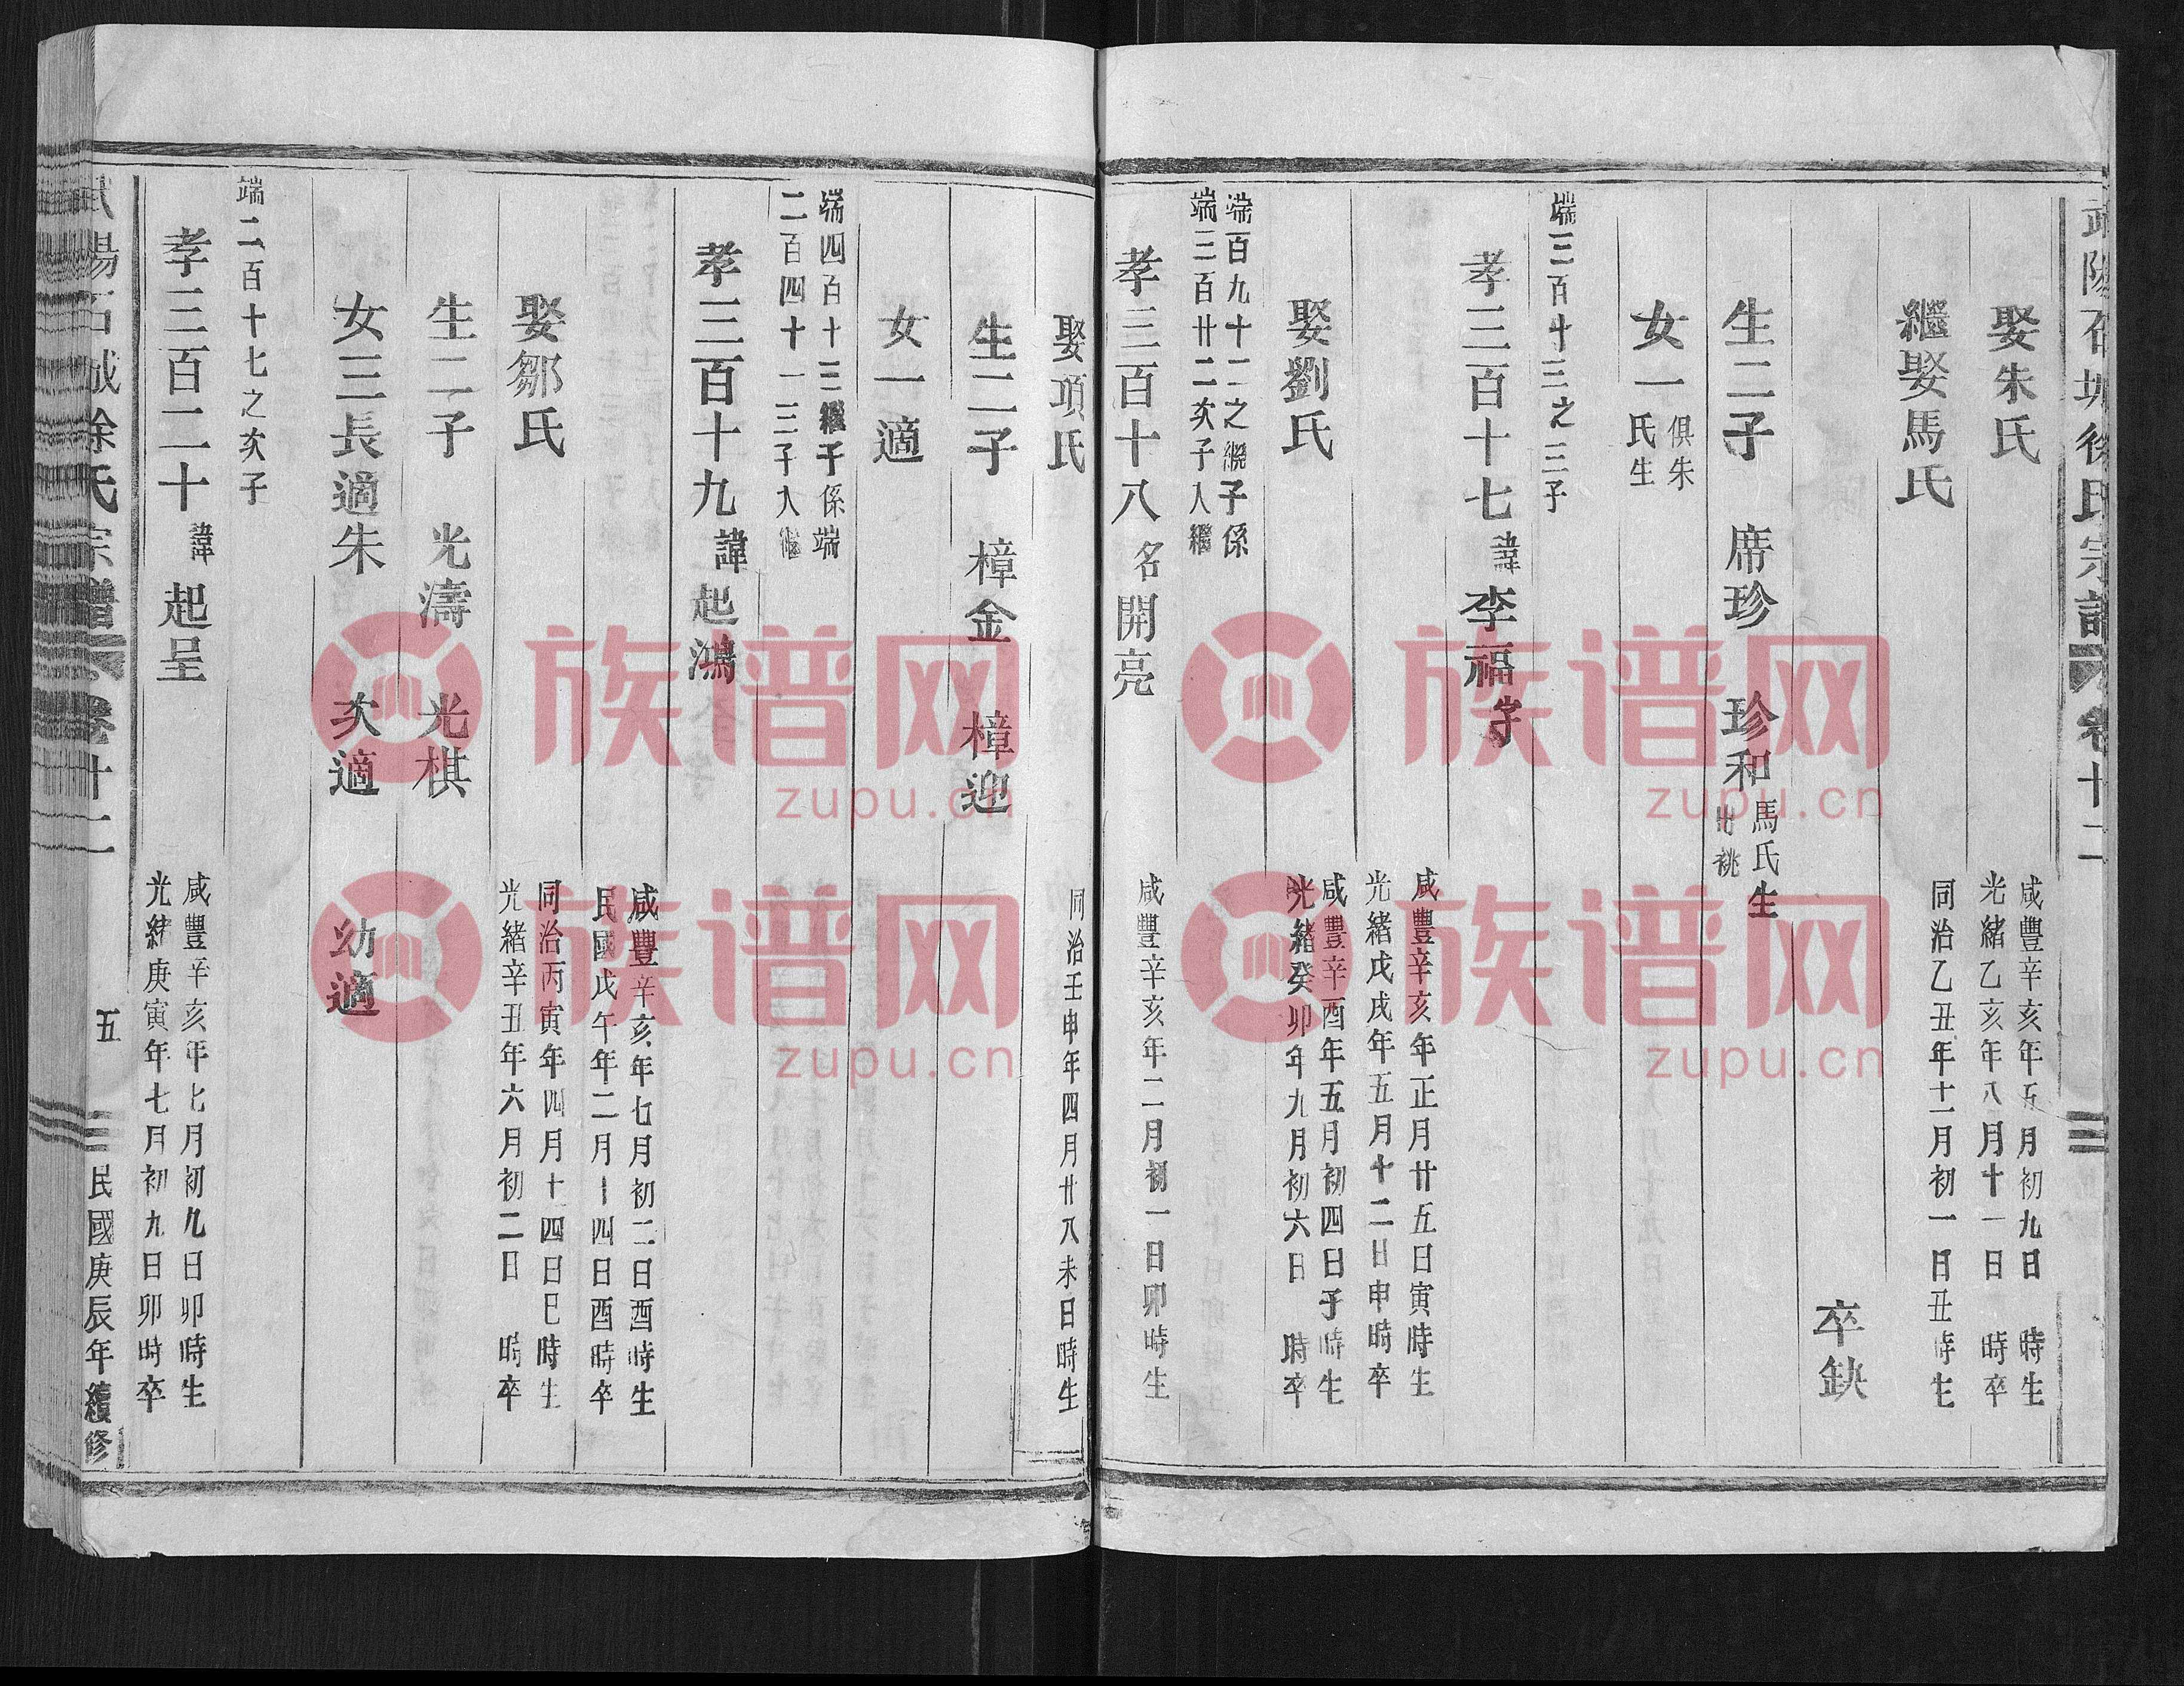 娶朱氏 咸豐辛亥年五月初九日 時生
光緒乙亥年八月十一日 時卒
繼娶馬氏 同治乙丑年十一月初一日丑時生
卒缺
生二子 席珍 珍和 馬氏生
女一 俱朱
氏生
端三百十三之三子
孝三百十七 諱李福字 咸豐辛亥年正月廿五日寅時生
光緒戊戌年五月十二日申時卒
娶劉氏 咸豐辛酉年五月初四日子時生
光緒癸卯年九月初六日 時卒
端百九十二之繼子係
端三百廿二次子入繼
孝三百十八 名開亮 咸豐辛亥年二月初一日卯時生
娶項氏 同治壬申年四月廿八未日時生
生二子 樟金 樟迎
女一適
端四百十三繼子係端
二百四十一三子入繼
孝三百十九 諱起鴻 咸豐辛亥年七月初二日酉時生
民國戊午年二月十四日酉時卒
娶鄒氏 同治丙寅年四月十四日巳時生
光緒辛丑年六月初二日 時卒
生二子 光濤 光棋
女三長適朱 次適 幼適
端二百十七之次子
孝三百二十 諱起呈 咸豐辛亥年七月初九日卯時生
光緒庚寅年七月初九日卯時卒
徐氏宗譜 卷十二 五 民國庚辰年續修
族谱网
zupu.cn
族谱网
zupu.cn
族谱网
zupu.cn
族谱网
zupu.cn